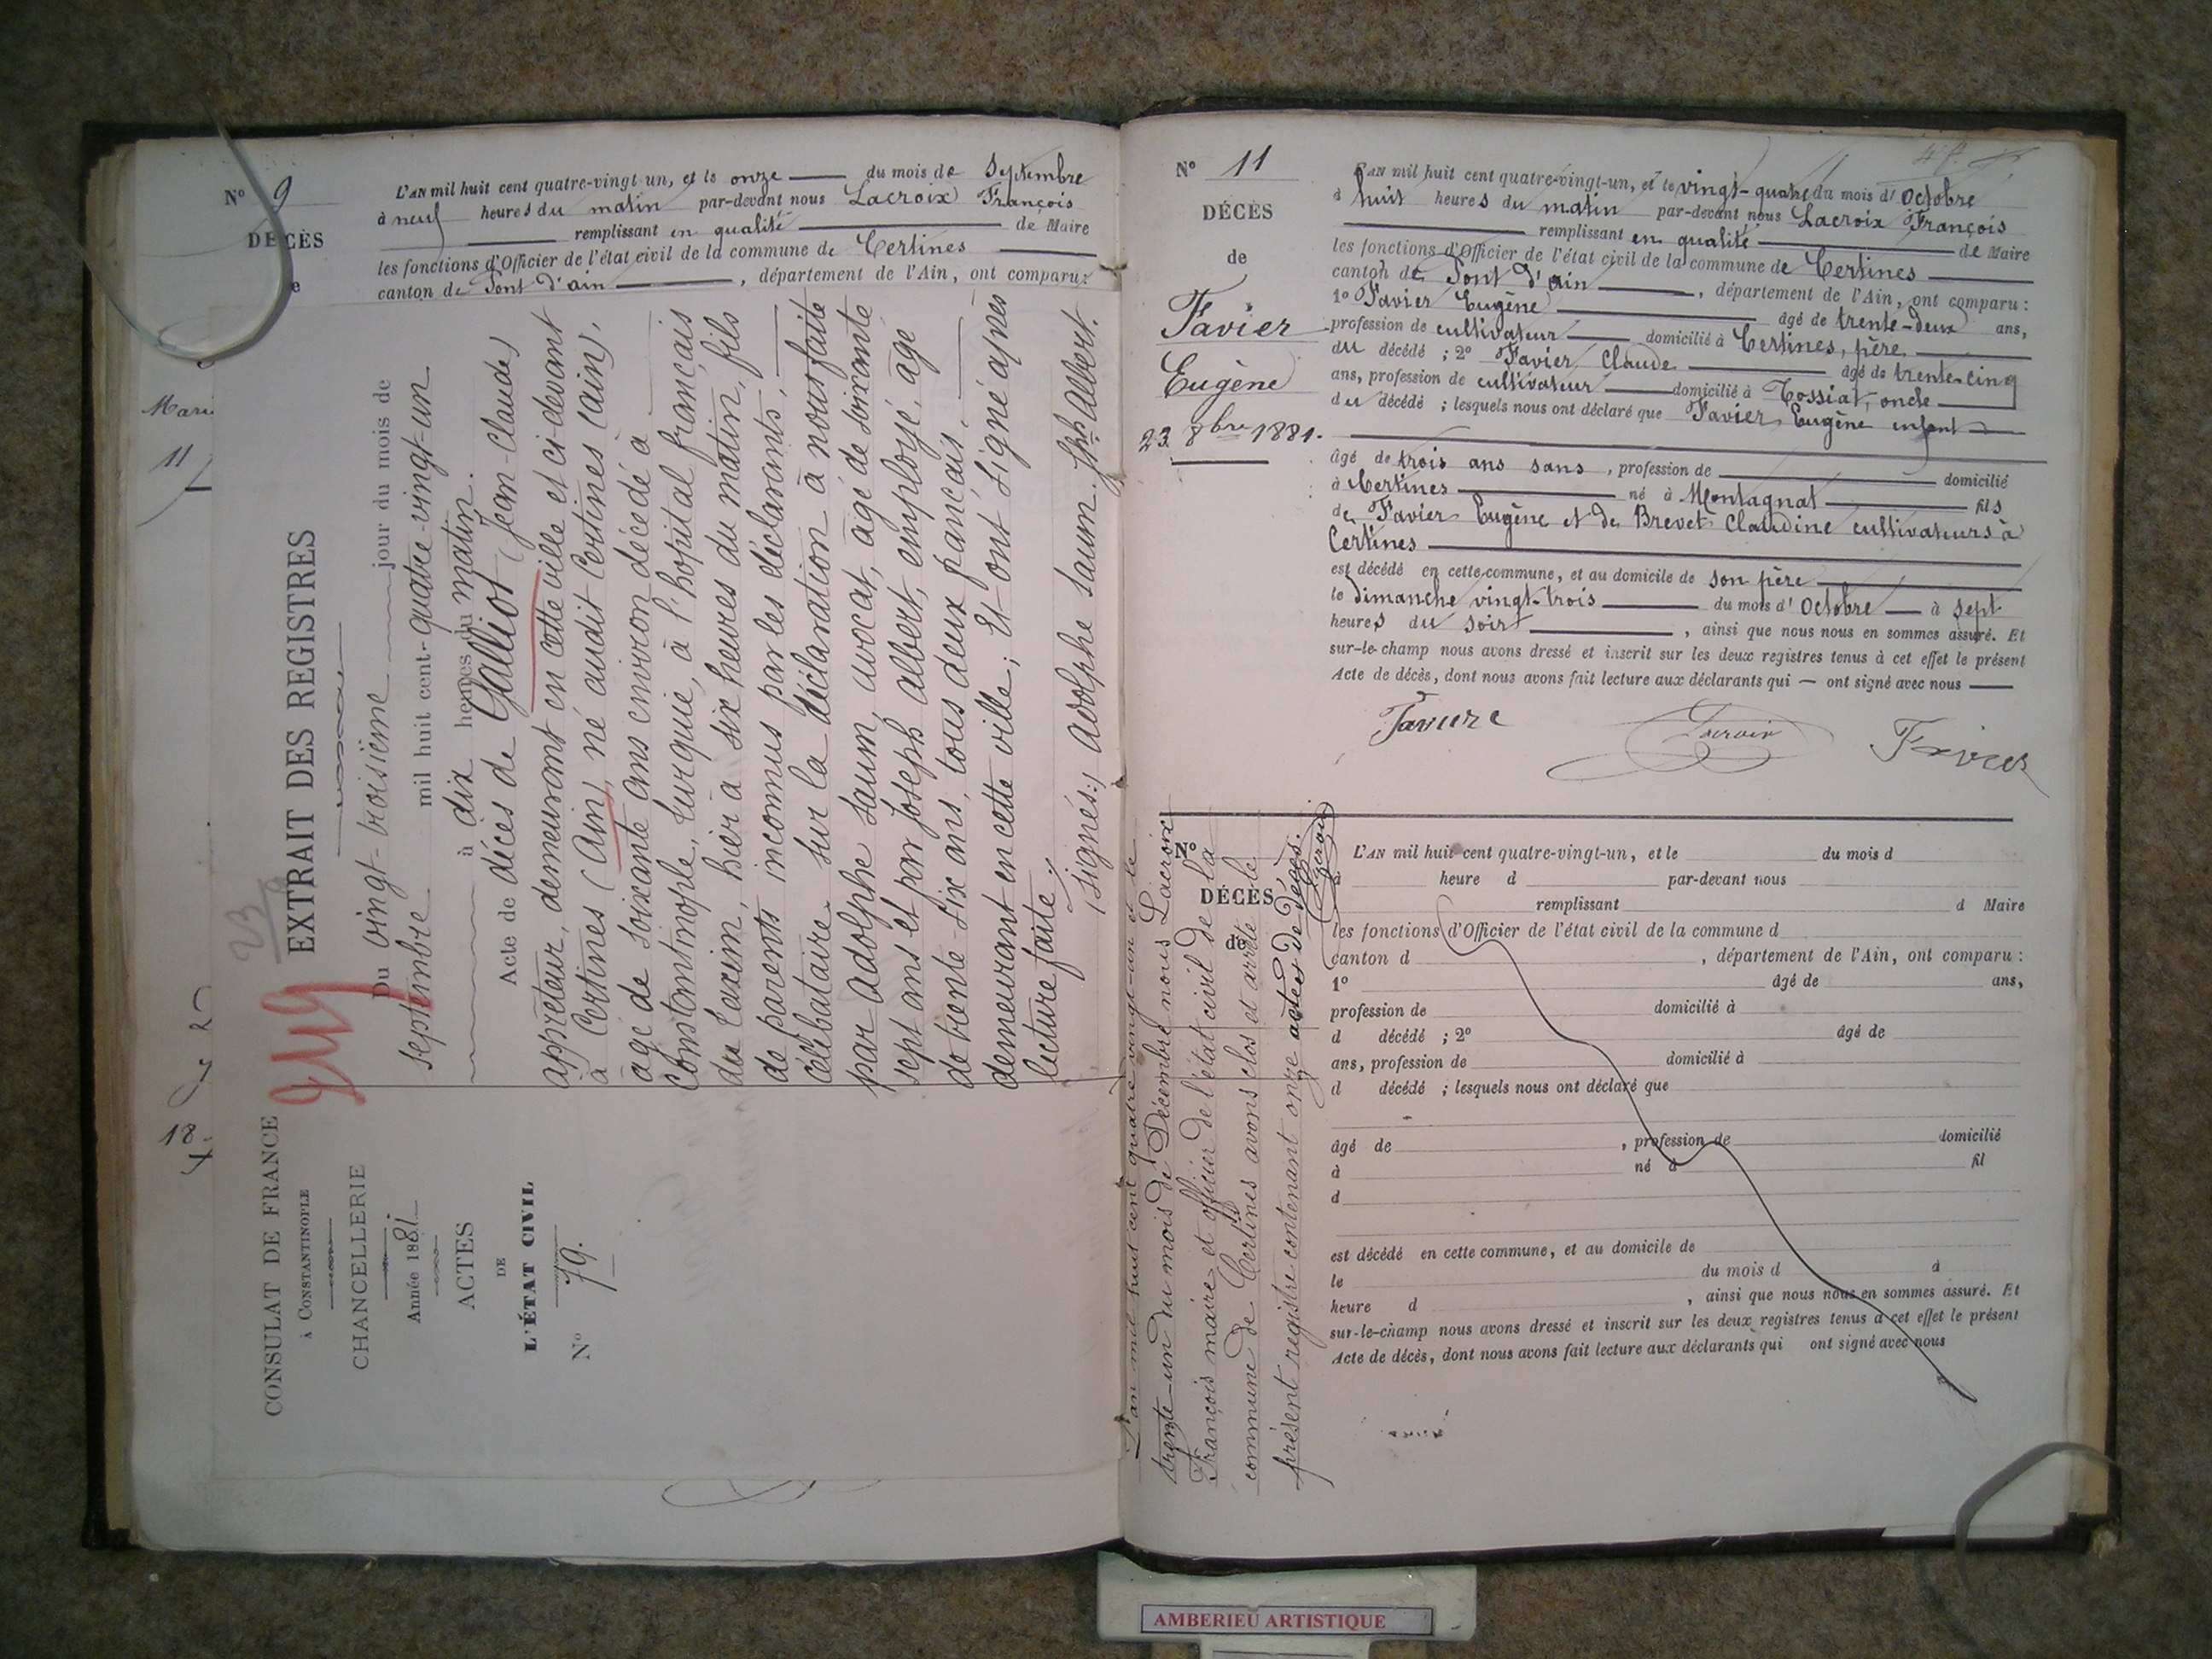 N° 9
DÉCÈS
L'AN mil huit cent quatre-vingt-un, et le onze du mois de Septembre
à neuf heures du matin par-devant nous Lacroix François
remplissant en qualité de Maire
les fonctions d'Officier de l'état civil de la commune de Certines
canton de Pont d'ain, département de l'Ain, ont comparu:
Mari
11
18
CONSULAT DE FRANCE
à CONSTANTINOPLE
CHANCELLERIE
Année 1881
ACTES
DE
L'ÉTAT CIVIL
N° 79.
23
EXTRAIT DES REGISTRES
Du vingt-troisième jour du mois de
septembre mil huit cent-quatre-vingt-un
à dix heures du matin.
Acte de décès de Galliot (Jean-Claude)
apprêteur, demeurant en cette ville et ci-devant
à Certines (Ain), né audit Certines (ain),
âgé de soixante ans environ, décédé à
Constantinople, turquie, à l'hopital français
du taxim, hier à six heures du matin, fils
de parents inconnus par les déclarants,
célibataire. Sur la déclaration à nous faite
par Adolphe Saum, avocat, âgé de soixante
sept ans et par Joseph albert, employé, âgé
de trente-six ans, tous deux français,
demeurant en cette ville; Et ont signé après
lecture faite.
(signés:) Adolphe Saum. Jph albert.
N° 11
DÉCÈS
de
Favier
Eugène
23 8bre 1881.
L'AN mil huit cent quatre-vingt-un, et le vingt-quatre du mois d'Octobre
à huit heures du matin par-devant nous Lacroix François
remplissant en qualité de Maire
les fonctions d'Officier de l'état civil de la commune de Certines
canton de Pont d'ain, département de l'Ain, ont comparu :
1° Favier Eugène âgé de trente-deux ans,
profession de cultivateur domicilié à Certines, père
du décédé ; 2° Favier Claude âgé de trente-cinq
ans, profession de cultivateur domicilié à Tossiat, oncle
du décédé ; lesquels nous ont déclaré que Favier Eugène enfant
âgé de trois ans sans, profession de domicilié
à Certines né à Montagnat fils
de Favier Eugène et de Brevet Claudine cultivateurs à
Certines
est décédé en cette commune, et au domicile de son père
le dimanche vingt-trois du mois d'Octobre à sept
heures du soir, ainsi que nous nous en sommes assuré. Et
sur-le-champ nous avons dressé et inscrit sur les deux registres tenus à cet effet le présent
Acte de décès, dont nous avons fait lecture aux déclarants qui — ont signé avec nous
Lacroix
L'an mil huit cent quatre vingt-un et le
trente-un du mois de Décembre nous Lacroix
François maire et officier de l'état civil de la
commune de Certines avons clos et arrêté le
présent registre contenant onze actes de Décès.
Lacroix
N°
DÉCÈS
de
L'AN mil huit cent quatre-vingt-un, et le du mois d
à heure d par-devant nous
remplissant d Maire
les fonctions d'Officier de l'état civil de la commune d
canton d , département de l'Ain, ont comparu :
1° âgé de ans,
profession de domicilié à
d décédé ; 2° âgé de
ans, profession de domicilié à
d décédé ; lesquels nous ont déclaré que
âgé de , profession de domicilié
à né à fil
d
est décédé en cette commune, et au domicile de
le du mois d à
heure d , ainsi que nous nous en sommes assuré. Et
sur-le-champ nous avons dressé et inscrit sur les deux registres tenus à cet effet le présent
Acte de décès, dont nous avons fait lecture aux déclarants qui ont signé avec nous
AMBERIEU ARTISTIQUE